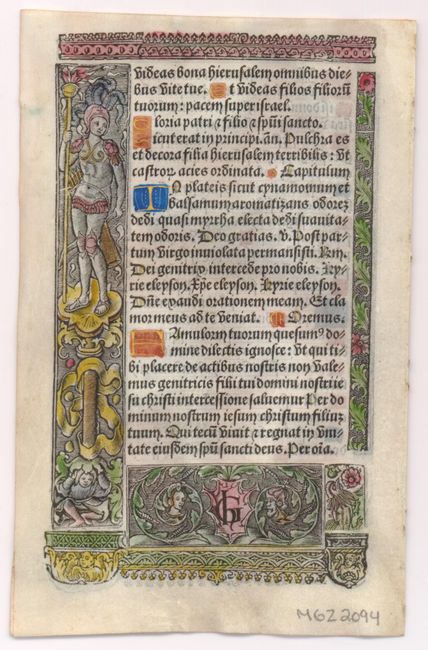 videas bona hierusalem omnibus die-
bus vite tue. Et videas filios filiorū
tuorum: pacem super israel.
Gloria patri & filio & spūi sancto.
Sicut erat in principi. añ. Pulchra es
et decora filia hierusalem terribilis: vt
castroꝝ acies ordinata. Capitulum
IN plateis sicut cynamomum et
balsamum aromatizans odorez
dedi quasi myrrha electa dedi suauita-
tem odoris. Deo gratias. v. Post par-
tum virgo inuiolata permansisti. Rm̄.
Dei genitrix intercede pro nobis. Ky-
rie eleyson. Xp̄e eleyson. Kyrie eleyson.
Dn̄e exaudi orationem meam. Et cla
mor meus ad te veniat. Oremus.
FAmulorum tuorum quesumꝰ do-
mine dilectis ignosce: vt qui ti-
bi placere de actibus nostris non vale-
mus genitricis filii tui domini nostri ie
su christi intercessione saluemur Per do
minum nostrum iesum christum filiuz
tuum. Qui tecū viuit & regnat in vni-
tate eiusdem spūs sancti deus. Per oīa.
MGZ 2094